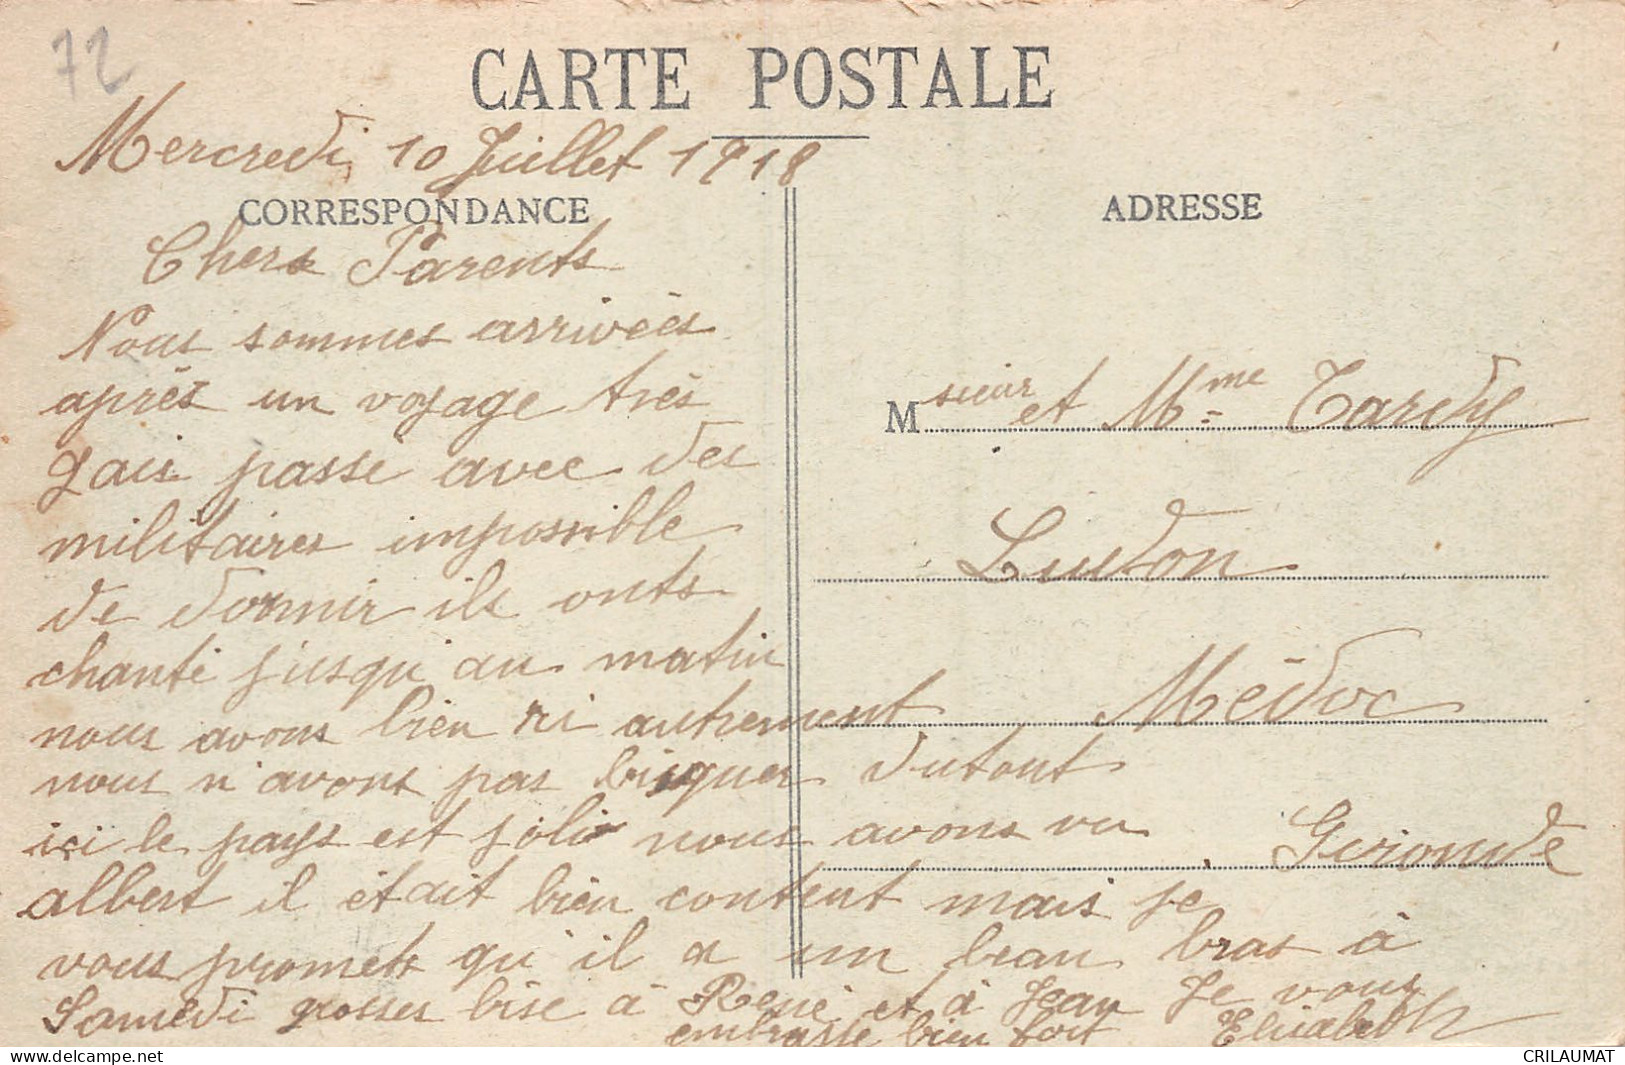 72
CARTE POSTALE
Mercredi 10 Juillet 1918
CORRESPONDANCE
Chers Parents
Nous sommes arrivées
après un voyage très
gais passe avec des
militaires impossible
de dormir ils onts
chanté jusqu'au matin
nous avons bien ri autrement
nous n'avons pas bisquer dutout
ici le pays est joli nous avons vu
albert il était bien content mais je
vous promets qu'il a un beau bras à
Samedi grosses bise à René et à Jean Je vous
embrasse bien fort Elisabeth
ADRESSE
Msieur et Mme Tardy
Ludon
Médoc
Gironde
CRILAUMAT